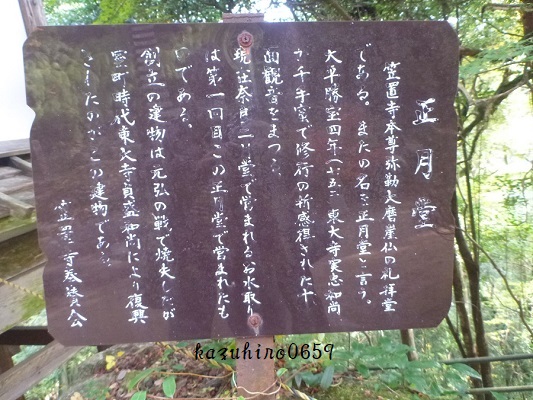 正月堂
笠置寺本尊弥勒大磨崖仏の礼拝堂
である。またの名を正月堂と言う。
天平勝宝四年(七五二)東大寺実忠和尚
が千手窟で修行の折感得された十
面観音をまつる
現在奈良二月堂で営まれるお水取り
は第一回目この正月堂で営まれたも
のである。
創立の建物は元弘の戦で焼失したが
室町時代東大寺貞盛和尚により復興
されたのがこの建物である
笠置寺奉賛会
kazuhiro0659